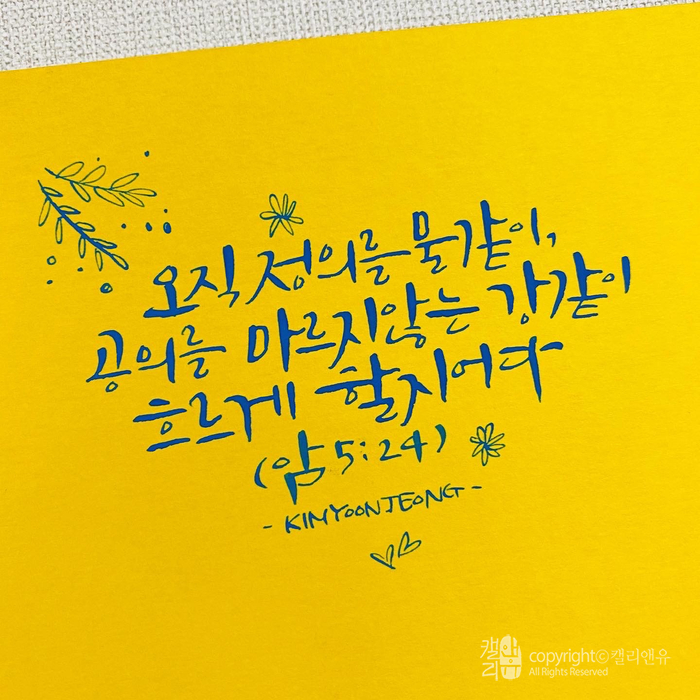 오직 정의를 물같이,
공의를 마르지않는 강같이
흐르게 할지어다
(암 5:24)
- KIMYOONJEONG -
캘리앤유
copyrightⓒ캘리앤유
All Rights Reserved